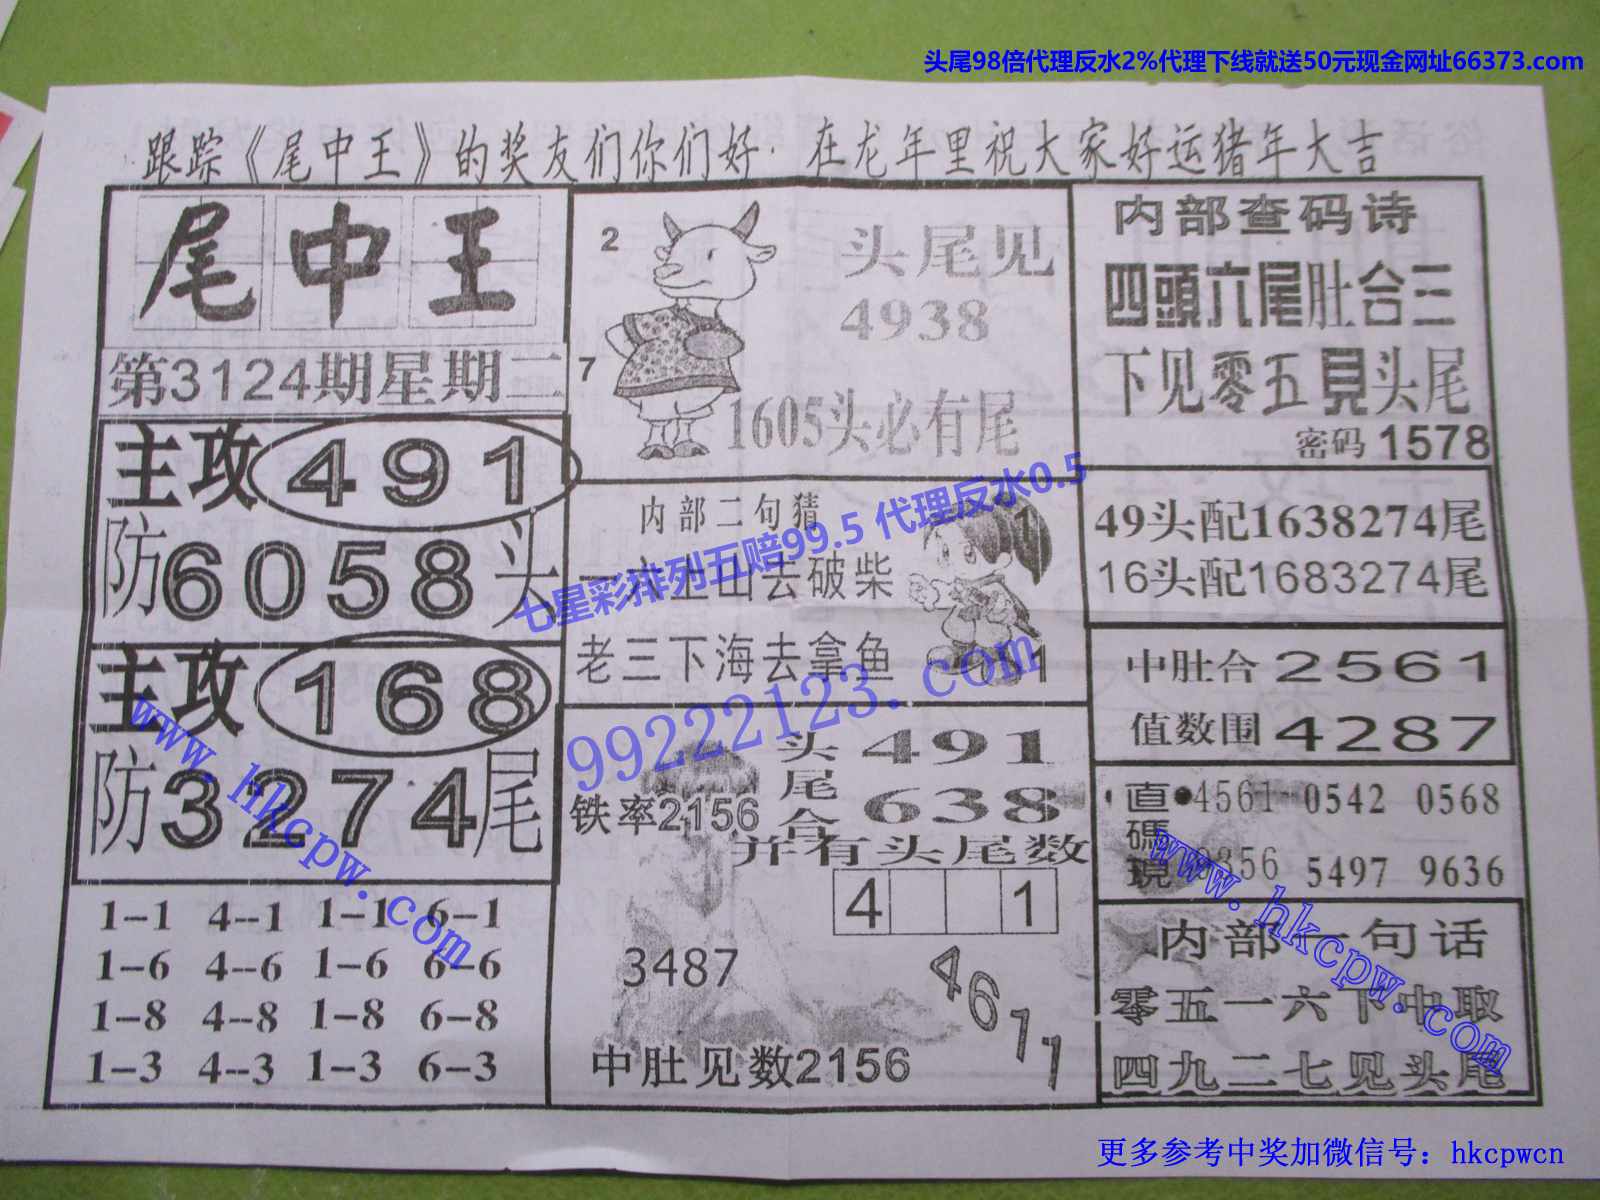 头尾98倍代理反水2%代理下线就送50元现金网址66373.com
跟踪《尾中王》的奖友们你们好·在龙年里祝大家好运猪年大吉
尾中王
第3124期星期二
主攻491
防6058头
主攻168
防3274尾
1-1 4--1 1-1 6-1
1-6 4--6 1-6 6-6
1-8 4--8 1-8 6-8
1-3 4--3 1-3 6-3
2
7
头尾见
4938
1605头必有尾
内部二句猜
一六上山去破柴
老三下海去拿鱼
1
1
七星彩排列五赔99.5 代理反水0.5
99222123.com
铁率2156
头尾合
491
638
并有头尾数
4 1
3487
4611
中肚见数2156
内部查码诗
四頭六尾肚合三
下见零五見头尾
密码 1578
49头配1638274尾
16头配1683274尾
中肚合2561
值数围4287
直碼現
4561 0542 0568
5497 9636
内部一句话
零五一六下中取
四九二七见头尾
www.hkcpw.com
www.hkcpw.com
更多参考中奖加微信号：hkcpwcn